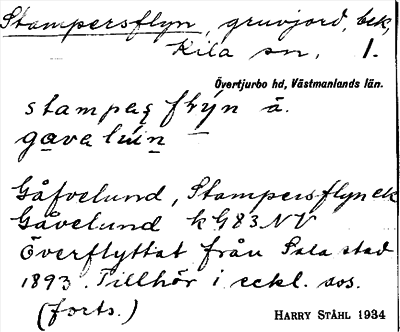 Stampersflyn, gruvjord, bek,
Kila sn, 1.
Övertjurbo hd, Västmanlands län.
stampas flýn ā.
gava lún
Gåfvelund, Stampersflyn ek
Gåvelund kG83NV
Överflyttat från Sala stad
1893. Tillhör i eckl. avs.
(forts.)
HARRY STÅHL 1934